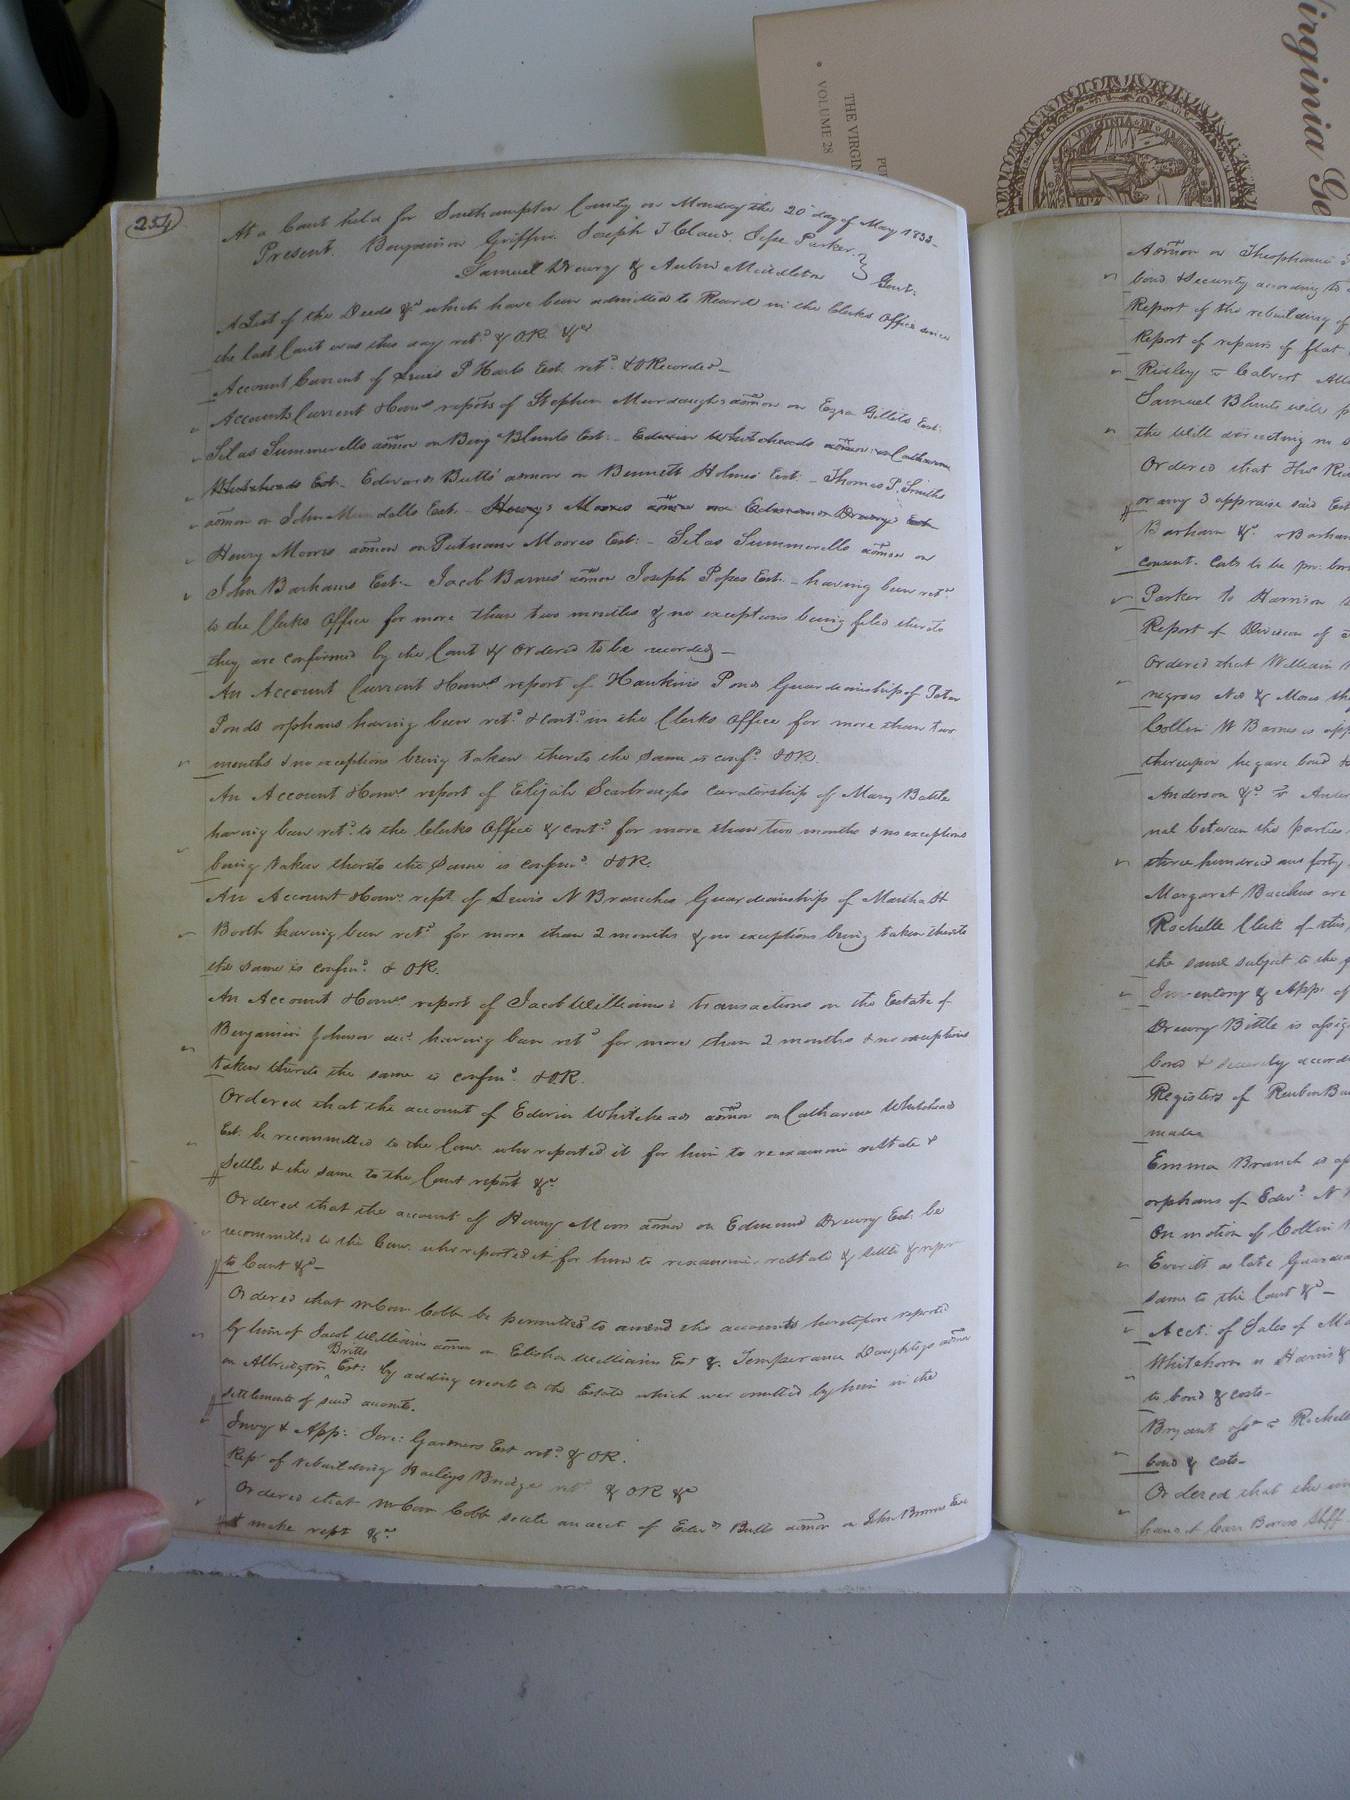 Virginia Ge
THE VIRGIN
VOLUME 28
VIRGINIA
254
At a Court held for Southampton County on Monday the 20 day of May 1833
Present. Benjamin Griffin. Joseph T Claud. Jesse Parker.
Samuel Drewry & Aubin Middleton } Gent:
A List of the Deeds &c which have been admitted to Record in the Clerks Office since
the last Court was this day retd & OR &c
Account Current of Lewis P Harts Est. retd & ORecorded
Accounts Current & Comrs reports of Stephen Murdaughs admor on Ezra Gilletts Est:
Silas Summerells admor on Benj Blunts Est: - Edwin Whiteheads admor on Catharine
Whiteheads Est. Edward Butts' admor on Bennett Holmes Est - Thomas P. Smiths
admor on John Mundalls Est - Henry Moores admor on Edmund Drewrys Est
Henry Moores admor on Putnam Moores Est: - Silas Summerells admor on
John Barhams Est: - Jacob Barnes' admor Joseph Popes Est. - having been retd
to the Clerks Office for more than two months & no exceptions being filed thereto
they are confirmed by the Court & Ordered to be recorded -
An Account Current & Comrs report of Hawkins Ponds Guardianship of Peter
Ponds orphans having been retd & contd in the Clerks Office for more than two
months & no exceptions being taken thereto the same is confd & OR.
An Account & Comrs report of Elijah Scarbroughs Curatorship of Mary Battle
having been retd to the Clerks Office & contd for more than two months & no exceptions
being taken thereto the same is confmd & OR.
An Account & Comrs rept of Lewis N Branches Guardianship of Martha H
Booth having been retd for more than 2 months & no exceptions being taken thereto
the same is confmd & OR.
An Account & Comrs report of Jacob Williams's transactions on the Estate of
Benjamin Johnson decd having been retd for more than 2 months & no exceptions
taken thereto the same is confmd & OR.
Ordered that the account of Edwin Whitehead admor on Catharine Whitehead
Est: be recommitted to the Comr. who reported it for him to reexamine restate &
settle & the same to the Court report &c
Ordered that the account of Henry Moore admor on Edmund Drewry Est: be
recommitted to the Comr. who reported it for him to reexamine, restate & settle & repor
to Court &c -
Ordered that mr Com Cobb be permitted to amend the accounts heretofore reported
by him of Jacob Williams admor on Elisha Williams Est & Temperance Daughtrys admor
on Albrington Britts Est: by adding credits to the Estate which were omitted by him in the
settlements of said accounts.
Invy & App: Gardners Est retd & OR.
Rep of rebuilding Haileys Bridge retd & OR &c
Ordered that mr Com Cobb settle an acct of Edwd Butts admor on John Est
& make rept &c
Admor on Theophani
bond & Security according to
Report of the rebuilding of
Report of repairs of flat
Ridley v Calvert
Samuel Blunts will p
the will directing no
Ordered that
or any 3 appraise said Est
Barham &c v Barham
consent. Costs to be
Parker to Harrison
Report of Division of
Ordered that William
negroes Ned & Moses
Collin W Barnes is app
thereupon he gave bond &
Anderson &c v Ander
nal between the parties
three hundred and forty
Margaret Bacchus are
Rochelle Clerk of this
the same subject to the
Inventory & App: of
Drewry Bittle is assig
bond & security accord
Registers of Reuben
made
Emma Branch is
orphans of Edwd N
On motion of Collin
Everitt as late Guardia
same to the Court &c -
Acct: of Sales of
Whitehorn v Harris &
to bond & costs -
Bryant v Rochell
bond & costs -
Ordered that the